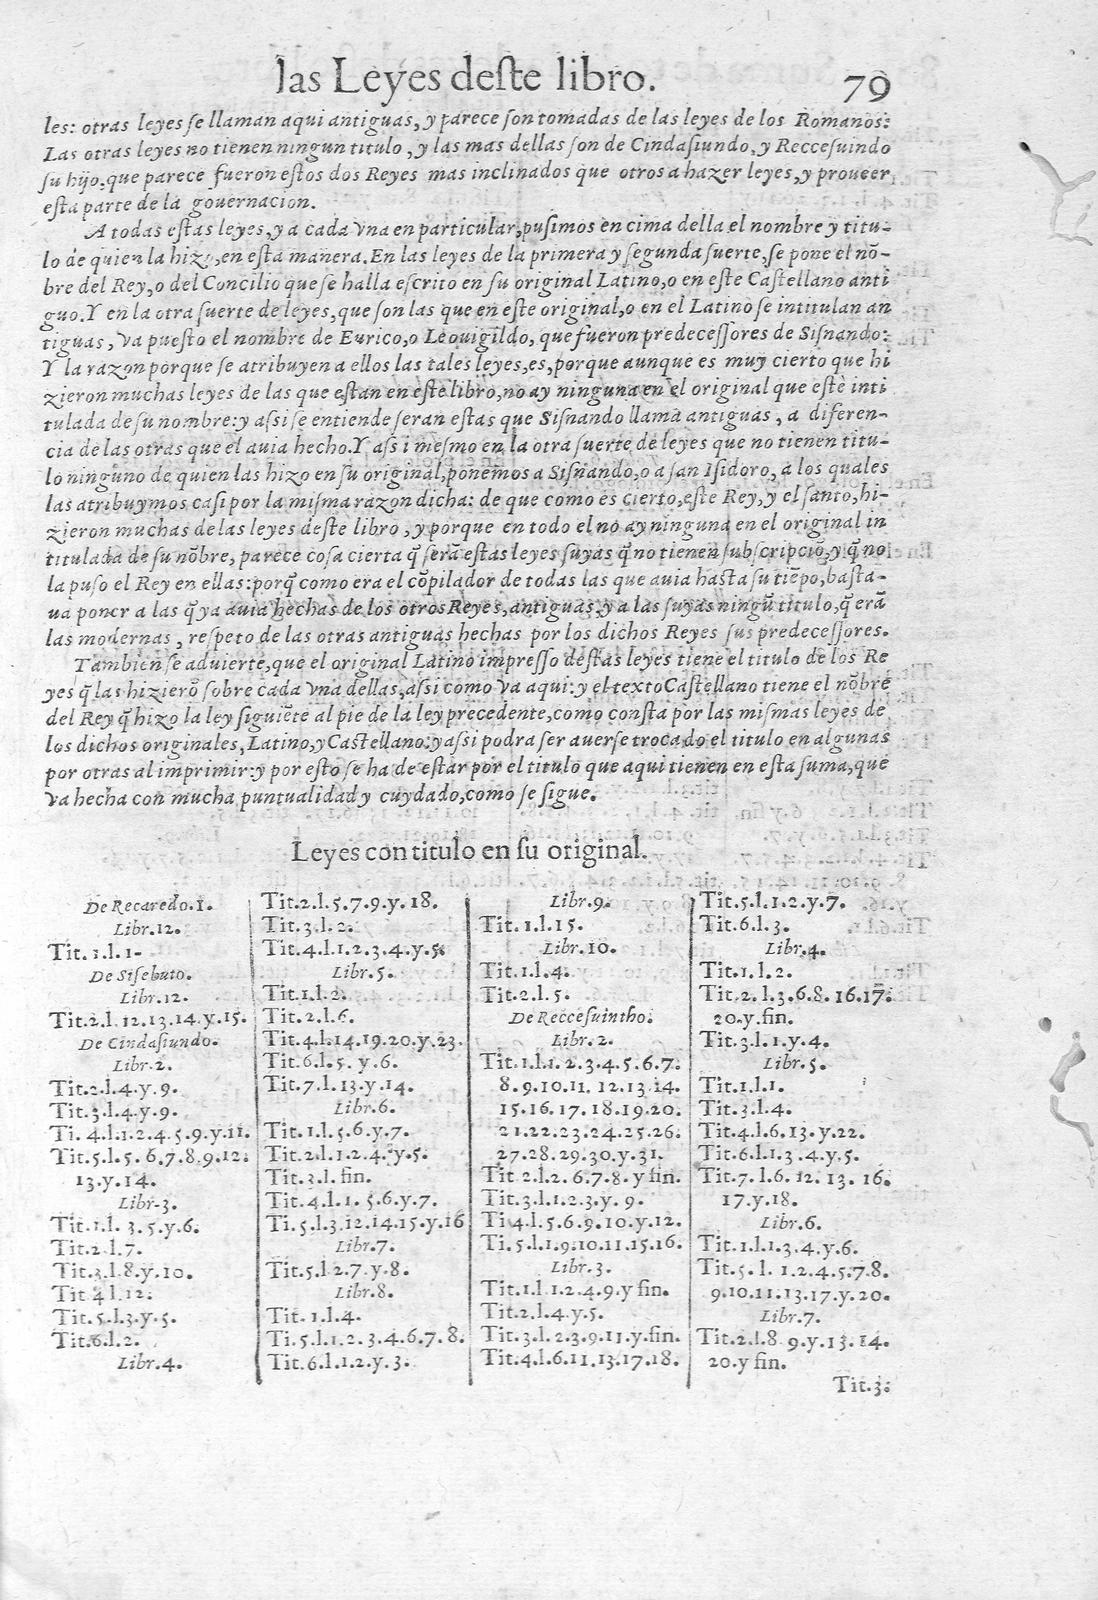 las Leyes deste libro. 79
les: otras leyes se llaman aqui antiguas, y parece son tomadas de las leyes de los Romanos:
Las otras leyes no tienen ningun titulo, y las mas dellas son de Cindasiundo, y Reccesuindo
su hijo, que parece fueron estos dos Reyes mas inclinados que otros a hazer leyes, y proueer
esta parte de la gouernacion.
A todas estas leyes, y a cada vna en particular, pusimos encima della el nombre y titu-
lo de quien la hizo, en esta manera. En las leyes de la primera y segunda suerte, se pone el nõ-
bre del Rey, o del Concilio que se halla escrito en su original Latino, o en este Castellano anti
guo. Y en la otra suerte de leyes, que son las que en este original, o en el Latino se intitulan an
tiguas, va puesto el nombre de Eurico, o Leouigildo, que fueron predecessores de Sisnando:
Y la razon porque se atribuyen a ellos las tales leyes, es, porque aunque es muy cierto que hi
zieron muchas leyes de las que estan en este libro, no ay ninguna en el original que este inti
tulada de su nombre: y assi se entiende seran estas que Sisnando llama antiguas, a diferen-
cia de las otras que el auia hecho. Y assi mesmo en la otra suerte de leyes que no tienen titu-
lo ninguno de quien las hizo en su original, ponemos a Sisnando, o a san Isidoro, a los quales
las atribuymos casi por la misma razon dicha: de que como es cierto, este Rey, y el santo, hi-
zieron muchas de las leyes deste libro, y porque en todo el no ay ninguna en el original in
titulada de su nõbre, parece cosa cierta q̃ serã estas leyes suyas q̃ no tienen subscripciõ, y q̃ no
la puso el Rey en ellas: porq̃ como era el cõpilador de todas las que auia hasta su tiẽpo, basta-
ua poner a las q̃ ya auia hechas de los otros Reyes, antiguas, y a las suyas ningũ titulo, q̃ erã
las modernas, respeto de las otras antiguas hechas por los dichos Reyes sus predecessores.
Tambien se aduierte, que el original Latino impresso destas leyes tiene el titulo de los Re
yes q̃ las hizierõ sobre cada vna dellas, assi como va aqui: y el texto Castellano tiene el nõbre
del Rey q̃ hizo la ley siguiẽte al pie de la ley precedente, como consta por las mismas leyes de
los dichos originales, Latino, y Castellano: y assi podra ser auerse trocado el titulo en algunas
por otras al imprimir: y por esto se ha de estar por el titulo que aqui tienen en esta suma, que
va hecha con mucha puntualidad y cuydado, como se sigue.
Leyes con titulo en su original.
De Recaredo. 1.
Libr. 12.
Tit. 1. l. 1.
De Sisebuto.
Libr. 12.
Tit. 2. l. 12. 13. 14. y. 15.
De Cindasiundo.
Libr. 2.
Tit. 2. l. 4. y. 9.
Tit. 3. l. 4. y. 9.
Ti. 4. l. 1. 2. 4. 5. 9. y. 11.
Tit. 5. l. 5. 6. 7. 8. 9. 12.
13. y. 14.
Libr. 3.
Tit. 1. l. 3. 5. y. 6.
Tit. 2. l. 7.
Tit. 3. l. 8. y. 10.
Tit. 4. l. 12.
Tit. 5. l. 3. y. 5.
Tit. 6. l. 2.
Libr. 4.
Tit. 2. l. 5. 7. 9. y. 18.
Tit. 3. l. 2.
Tit. 4. l. 1. 2. 3. 4. y. 5.
Libr. 5.
Tit. 1. l. 2.
Tit. 2. l. 6.
Tit. 4. l. 14. 19. 20. y. 23.
Tit. 6. l. 5. y. 6.
Tit. 7. l. 13. y. 14.
Libr. 6.
Tit. 1. l. 5. 6. y. 7.
Tit. 2. l. 1. 2. 4. y. 5.
Tit. 3. l. fin.
Tit. 4. l. 1. 5. 6. y. 7.
Ti. 5. l. 3. 12. 14. 15. y. 16
Libr. 7.
Tit. 5. l. 2. 7. y. 8.
Libr. 8.
Tit. 1. l. 4.
Ti. 5. l. 1. 2. 3. 4. 6. 7. 8.
Tit. 6. l. 1. 2. y. 3.
Libr. 9.
Tit. 1. l. 15.
Libr. 10.
Tit. 1. l. 4.
Tit. 2. l. 5.
De Reccesuintho.
Libr. 2.
Tit. 1. l. 1. 2. 3. 4. 5. 6. 7.
8. 9. 10. 11. 12. 13. 14.
15. 16. 17. 18. 19. 20.
21. 22. 23. 24. 25. 26.
27. 28. 29. 30. y. 31.
Tit 2. l. 2. 6. 7. 8. y fin.
Tit. 3. l. 1. 2. 3. y. 9.
Ti 4. l. 5. 6. 9. 10. y. 12.
Ti. 5. l. 1. 9. 10. 11. 15. 16.
Libr. 3.
Tit. 1. l. 1. 2. 4. 9. y fin.
Tit. 2. l. 4. y. 5.
Tit. 3. l. 2. 3. 9. 11. y. fin.
Tit. 4. l. 6. 11. 13. 17. 18.
Tit. 5. l. 1. 2. y. 7.
Tit. 6. l. 3.
Libr. 4.
Tit. 1. l. 2.
Tit. 2. l. 3. 6. 8. 16. 17.
20. y. fin.
Tit. 3. l. 1. y. 4.
Libr. 5.
Tit. 1. l. 1.
Tit. 3. l. 4.
Tit. 4. l. 6. 13. y. 22.
Tit. 6. l. 1. 3. 4. y. 5.
Tit. 7. l. 6. 12. 13. 16.
17. y. 18.
Libr. 6.
Tit. 1. l. 1. 3. 4. y. 6.
Tit. 5. l. 1. 2. 4. 5. 7. 8.
9. 10. 11. 13. 17. y. 20.
Libr. 7.
Tit. 2. l. 8. 9. y. 13. 14.
20. y fin.
Tit. 3.